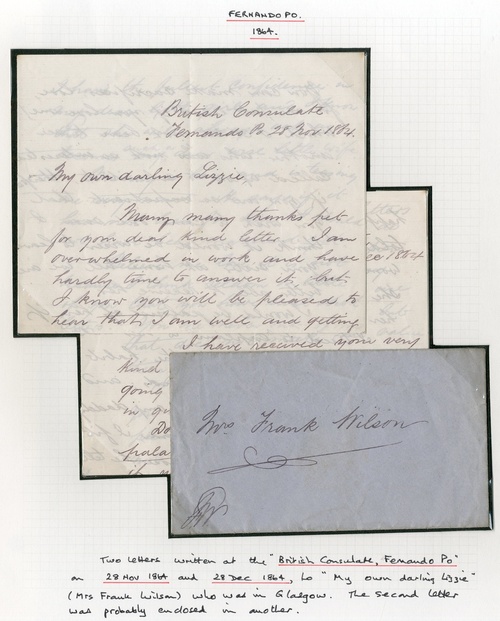 FERNANDO PO.
1864.
British Consulate
Fernando Po 28 Nov 1864.
My own darling Lizzie,
Many many thanks pet
for your dear kind letter I am
overwhelmed in work and have
hardly time to answer it, but
I know you will be pleased to
hear that I am well and getting
ec 1864
I have received your very
kind
going
in
Do
pala
it
Mrs Frank Wilson
Two letters written at the "British Consulate, Fernando Po"
on 28 Nov 1864 and 28 Dec 1864, to "My own darling Lizzie"
(Mrs Frank Wilson) who was in Glasgow. The second letter
was probably enclosed in another.